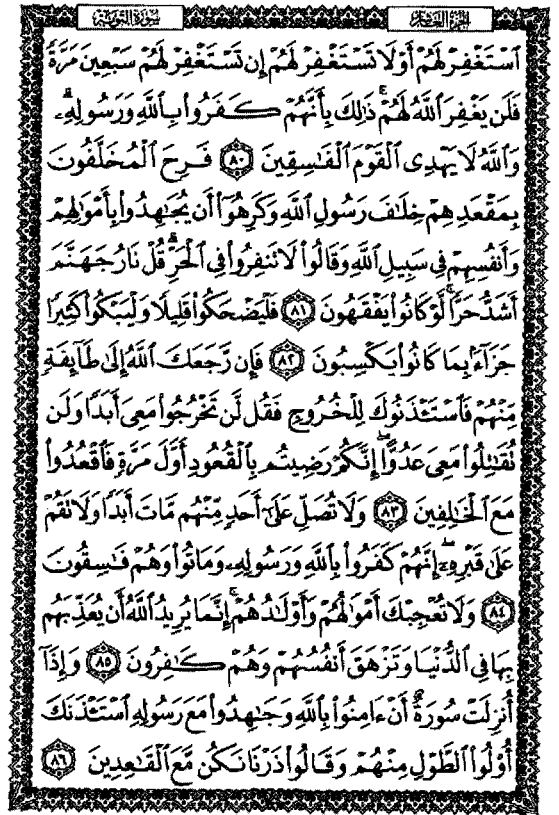 سورة التوبة
الجزء العاشر
ٱسۡتَغۡفِرۡ لَهُمۡ أَوۡ لَا تَسۡتَغۡفِرۡ لَهُمۡ إِن تَسۡتَغۡفِرۡ لَهُمۡ سَبۡعِينَ مَرَّةٗ
فَلَن يَغۡفِرَ ٱللَّهُ لَهُمۡۚ ذَٰلِكَ بِأَنَّهُمۡ كَفَرُواْ بِٱللَّهِ وَرَسُولِهِۦۗ
وَٱللَّهُ لَا يَهۡدِي ٱلۡقَوۡمَ ٱلۡفَٰسِقِينَ ٨٠ فَرِحَ ٱلۡمُخَلَّفُونَ
بِمَقۡعَدِهِمۡ خِلَٰفَ رَسُولِ ٱللَّهِ وَكَرِهُوٓاْ أَن يُجَٰهِدُواْ بِأَمۡوَٰلِهِمۡ
وَأَنفُسِهِمۡ فِي سَبِيلِ ٱللَّهِ وَقَالُواْ لَا تَنفِرُواْ فِي ٱلۡحَرِّۗ قُلۡ نَارُ جَهَنَّمَ
أَشَدُّ حَرّٗاۚ لَّوۡ كَانُواْ يَفۡقَهُونَ ٨١ فَلۡيَضۡحَكُواْ قَلِيلٗا وَلۡيَبۡكُواْ كَثِيرٗا
جَزَآءَۢ بِمَا كَانُواْ يَكۡسِبُونَ ٨٢ فَإِن رَّجَعَكَ ٱللَّهُ إِلَىٰ طَآئِفَةٖ
مِّنۡهُمۡ فَٱسۡتَـٔۡذَنُوكَ لِلۡخُرُوجِ فَقُل لَّن تَخۡرُجُواْ مَعِيَ أَبَدٗا وَلَن
تُقَٰتِلُواْ مَعِيَ عَدُوًّاۖ إِنَّكُمۡ رَضِيتُم بِٱلۡقُعُودِ أَوَّلَ مَرَّةٖ فَٱقۡعُدُواْ
مَعَ ٱلۡخَٰلِفِينَ ٨٣ وَلَا تُصَلِّ عَلَىٰٓ أَحَدٖ مِّنۡهُم مَّاتَ أَبَدٗا وَلَا تَقُمۡ
عَلَىٰ قَبۡرِهِۦٓۖ إِنَّهُمۡ كَفَرُواْ بِٱللَّهِ وَرَسُولِهِۦ وَمَاتُواْ وَهُمۡ فَٰسِقُونَ
٨٤ وَلَا تُعۡجِبۡكَ أَمۡوَٰلُهُمۡ وَأَوۡلَٰدُهُمۡۚ إِنَّمَا يُرِيدُ ٱللَّهُ أَن يُعَذِّبَهُم
بِهَا فِي ٱلدُّنۡيَا وَتَزۡهَقَ أَنفُسُهُمۡ وَهُمۡ كَٰفِرُونَ ٨٥ وَإِذَآ
أُنزِلَتۡ سُورَةٌ أَنۡ ءَامِنُواْ بِٱللَّهِ وَجَٰهِدُواْ مَعَ رَسُولِهِ ٱسۡتَـٔۡذَنَكَ
أُوْلُواْ ٱلطَّوۡلِ مِنۡهُمۡ وَقَالُواْ ذَرۡنَا نَكُن مَّعَ ٱلۡقَٰعِدِينَ ٨٦